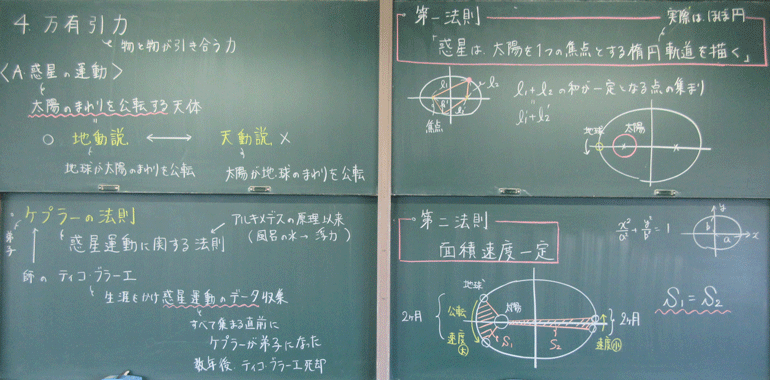 4. 万有引力
物と物が引き合う力
〈A. 惑星の運動〉
太陽のまわりを公転する天体
○ 地動説 ←→ 天動説 ×
地球が太陽のまわりを公転
太陽が地球のまわりを公転
ケプラーの法則
アルキメデスの原理以来
(風呂の水→浮力)
惑星運動に関する法則
弟子
師の ティコ・ブラーエ
生涯をかけ惑星運動のデータ収集
すべて集まる直前に
ケプラーが弟子になった
数年後・ティコ・ブラーエ死却
第一法則
実際は、ほぼ円
「惑星は、太陽を1つの焦点とする楕円軌道を描く」
l₁
l₂
l₁'
焦点
l₁+l₂ の和が一定となる点の集まり
l₁'+l₂'
地球
太陽
第二法則
面積速度一定
x²/a² + y²/b² = 1
y
b
a
x
地球
太陽
2ヶ月
公転
速度大
S₁
S₂
速度小
2ヶ月
S₁=S₂